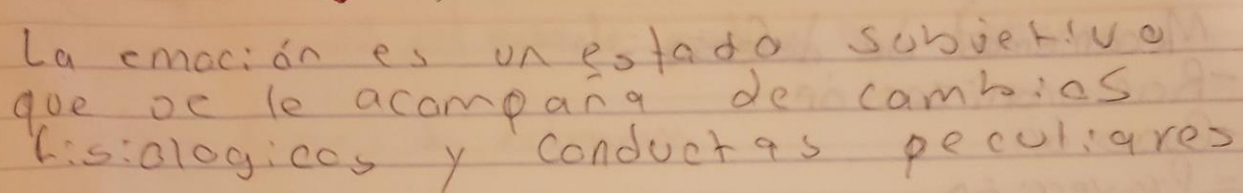 La emoción es un estado subjetivo
que se le acompaña de cambios
fisiologicos y conductas peculiares